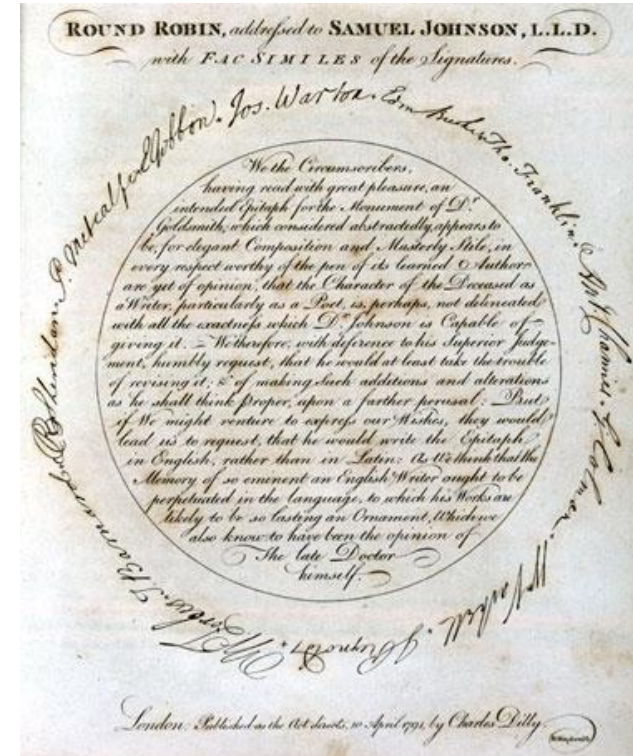 ROUND ROBIN, addressed to SAMUEL JOHNSON, L.L.D.
with FAC SIMILES of the Signatures.
Edm Burke. Tho. Franklin. Ant. Chamier. G Colman. Wm Vachell. J Reynolds. W Forbes. T Barnard. R B Sheridan. P. Metcalfe. E Gibbon. Jos. Warton.
We the Circumscribers,
having read with great pleasure, an
intended Epitaph for the Monument of Dr.
Goldsmith, which considered abstractedly, appears to
be, for elegant Composition and Masterly Stile, in
every respect worthy of the pen of its learned Author,
are yet of opinion, that the Character of the Deceased as
a Writer, particularly as a Poet, is, perhaps, not delineated
with all the exactness which Dr. Johnson is Capable of
giving it. – We therefore, with deference to his Superior Judge-
ment, humbly request, that he would at least take the trouble
of revising it; & of making such additions and alterations
as he shall think proper, upon a farther perusal: – But
if We might venture to express our Wishes, they would
lead us to request, that he would write the Epitaph
in English, rather than in Latin: As We think that the
Memory of so eminent an English Writer ought to be
perpetuated in the language, to which his Works are
likely to be so lasting an Ornament, Which we
also know to have been the opinion of
The late Doctor
himself.
London; Published as the Act directs, 10 April 1791, by Charles Dilly.